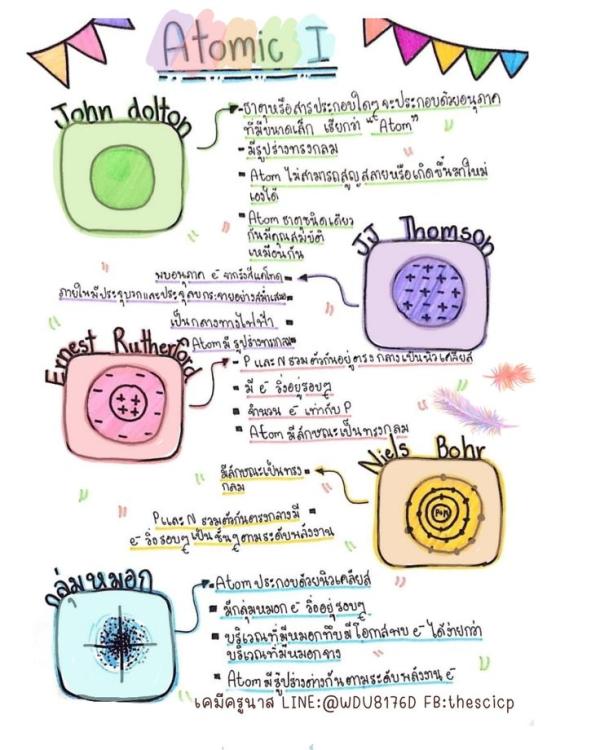 Atomic I
John dolton
-ธาตุหรือสารประกอบใดๆ จะประกอบด้วยอนุภาค
ที่มีขนาดเล็ก เรียกว่า "Atom"
- มีรูปร่างทรงกลม
- Atom ไม่สามารถสูญสลายหรือเกิดขึ้นมาใหม่
เองได้
- Atom ธาตุชนิดเดียว
กันมีคุณสมบัติ
เหมือนกัน
JJ Thomson
พบอนุภาค e⁻ จากรังสีแคโทด
ภายในมีประจุบวกและประจุลบกระจายอย่างสม่ำเสมอ
เป็นกลางทางไฟฟ้า
Atom มีรูปร่างทรงกลม
Ernest Rutherford
P และ N รวมตัวกันอยู่ตรงกลางเป็นนิวเคลียส
มี e⁻ วิ่งอยู่รอบๆ
จำนวน e⁻ เท่ากับ P
Atom มีลักษณะเป็นทรงกลม
Niels Bohr
มีลักษณะเป็นทรง
กลม
P และ N รวมตัวกันตรงกลางมี
e⁻ วิ่งรอบๆ เป็นชั้นๆตามระดับพลังงาน
P+N
กลุ่มหมอก
Atom ประกอบด้วยนิวเคลียส
มีกลุ่มหมอก e⁻ วิ่งอยู่รอบๆ
บริเวณที่มีหมอกทึบมีโอกาสพบ e⁻ ได้ง่ายกว่า
บริเวณที่มีหมอกจาง
Atom มีรูปร่างต่างกันตามระดับพลังงาน e⁻
เคมีครูนาส LINE:@WDU8176D FB:thescicp